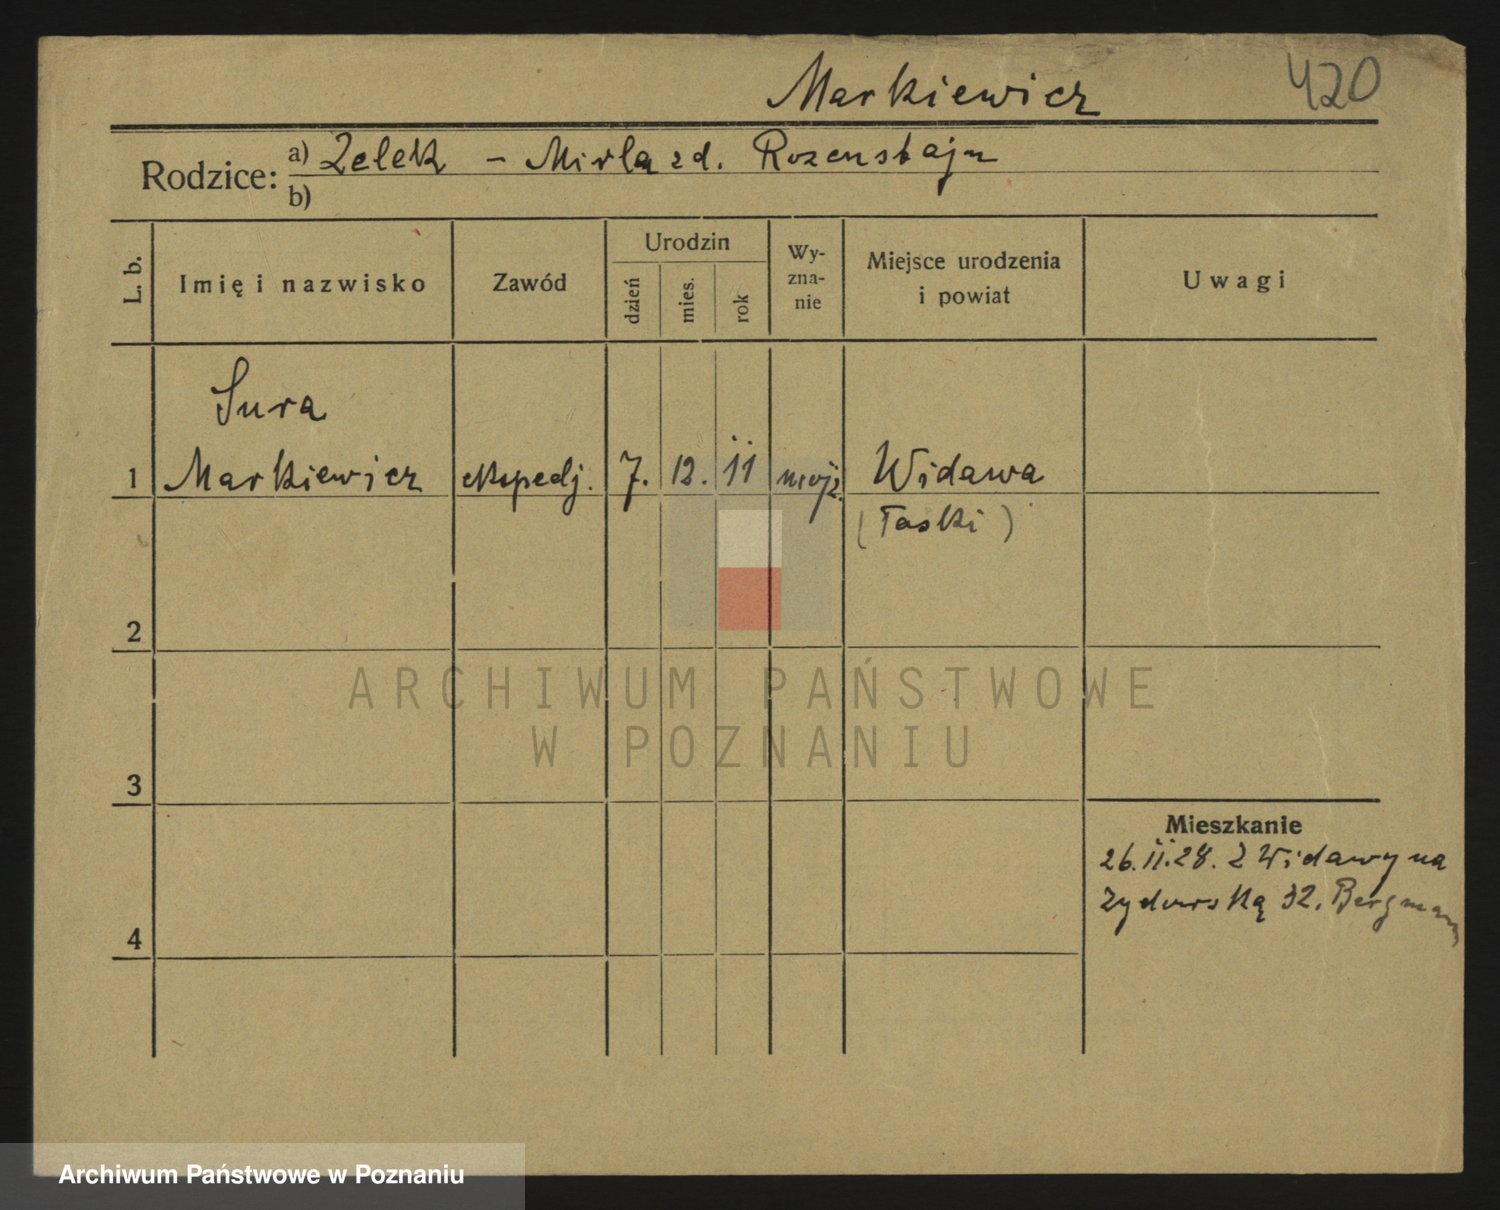 Markiewicz
420
Rodzice: a) Zelek – Mirla zd. Rozensztajn
b)
L. b.
Imię i nazwisko
Zawód
Urodzin
dzień
mies.
rok
Wy-
zna-
nie
Miejsce urodzenia
i powiat
Uwagi
Sura
1 Markiewicz ekspedj. 7. 12. 11 mojż. Widawa
(Łaski)
2
ARCHIWUM PAŃSTWOWE
W POZNANIU
3
Mieszkanie
26.II.28. Z Widawy na
Żydowską 32. Bergman
4
Archiwum Państwowe w Poznaniu